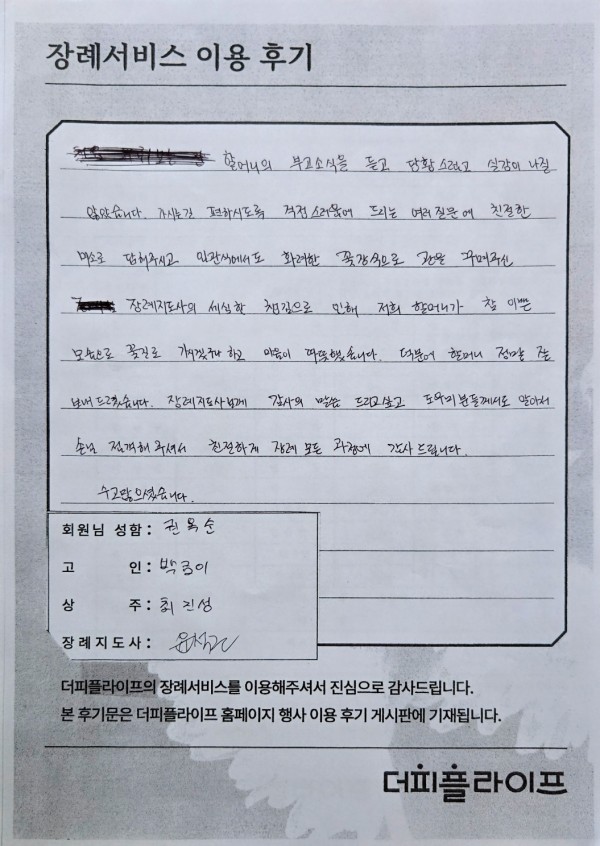 장례서비스 이용 후기
할머니의 부고소식을 듣고 당황스럽고 실감이 나질
않았습니다. 가시는길 편하시도록 걱정스러움에 드리는 여러질문에 친절한
미소로 답해주시고 입관식에서도 화려한 꽃장식으로 관을 꾸며주신
장례지도사의 세심한 챙김으로 인해 저희 할머니가 참 이쁜
모습으로 꽃길로 가시겠구나 하고 마음이 따뜻했습니다. 덕분에 할머니 정말 잘
보내 드렸습니다. 장례지도사님께 감사의 말씀 드리고싶고 도우미분들께서도 알아서
손님 접객해 주셔서 친절하게 장례 모든 과정에 감사드립니다.
수고많으셨습니다.
회원님 성함: 권옥순
고 인: 박금이
상 주: 최진성
장례지도사:
더피플라이프의 장례서비스를 이용해주셔서 진심으로 감사드립니다.
본 후기문은 더피플라이프 홈페이지 행사 이용 후기 게시판에 기재됩니다.
더피플라이프